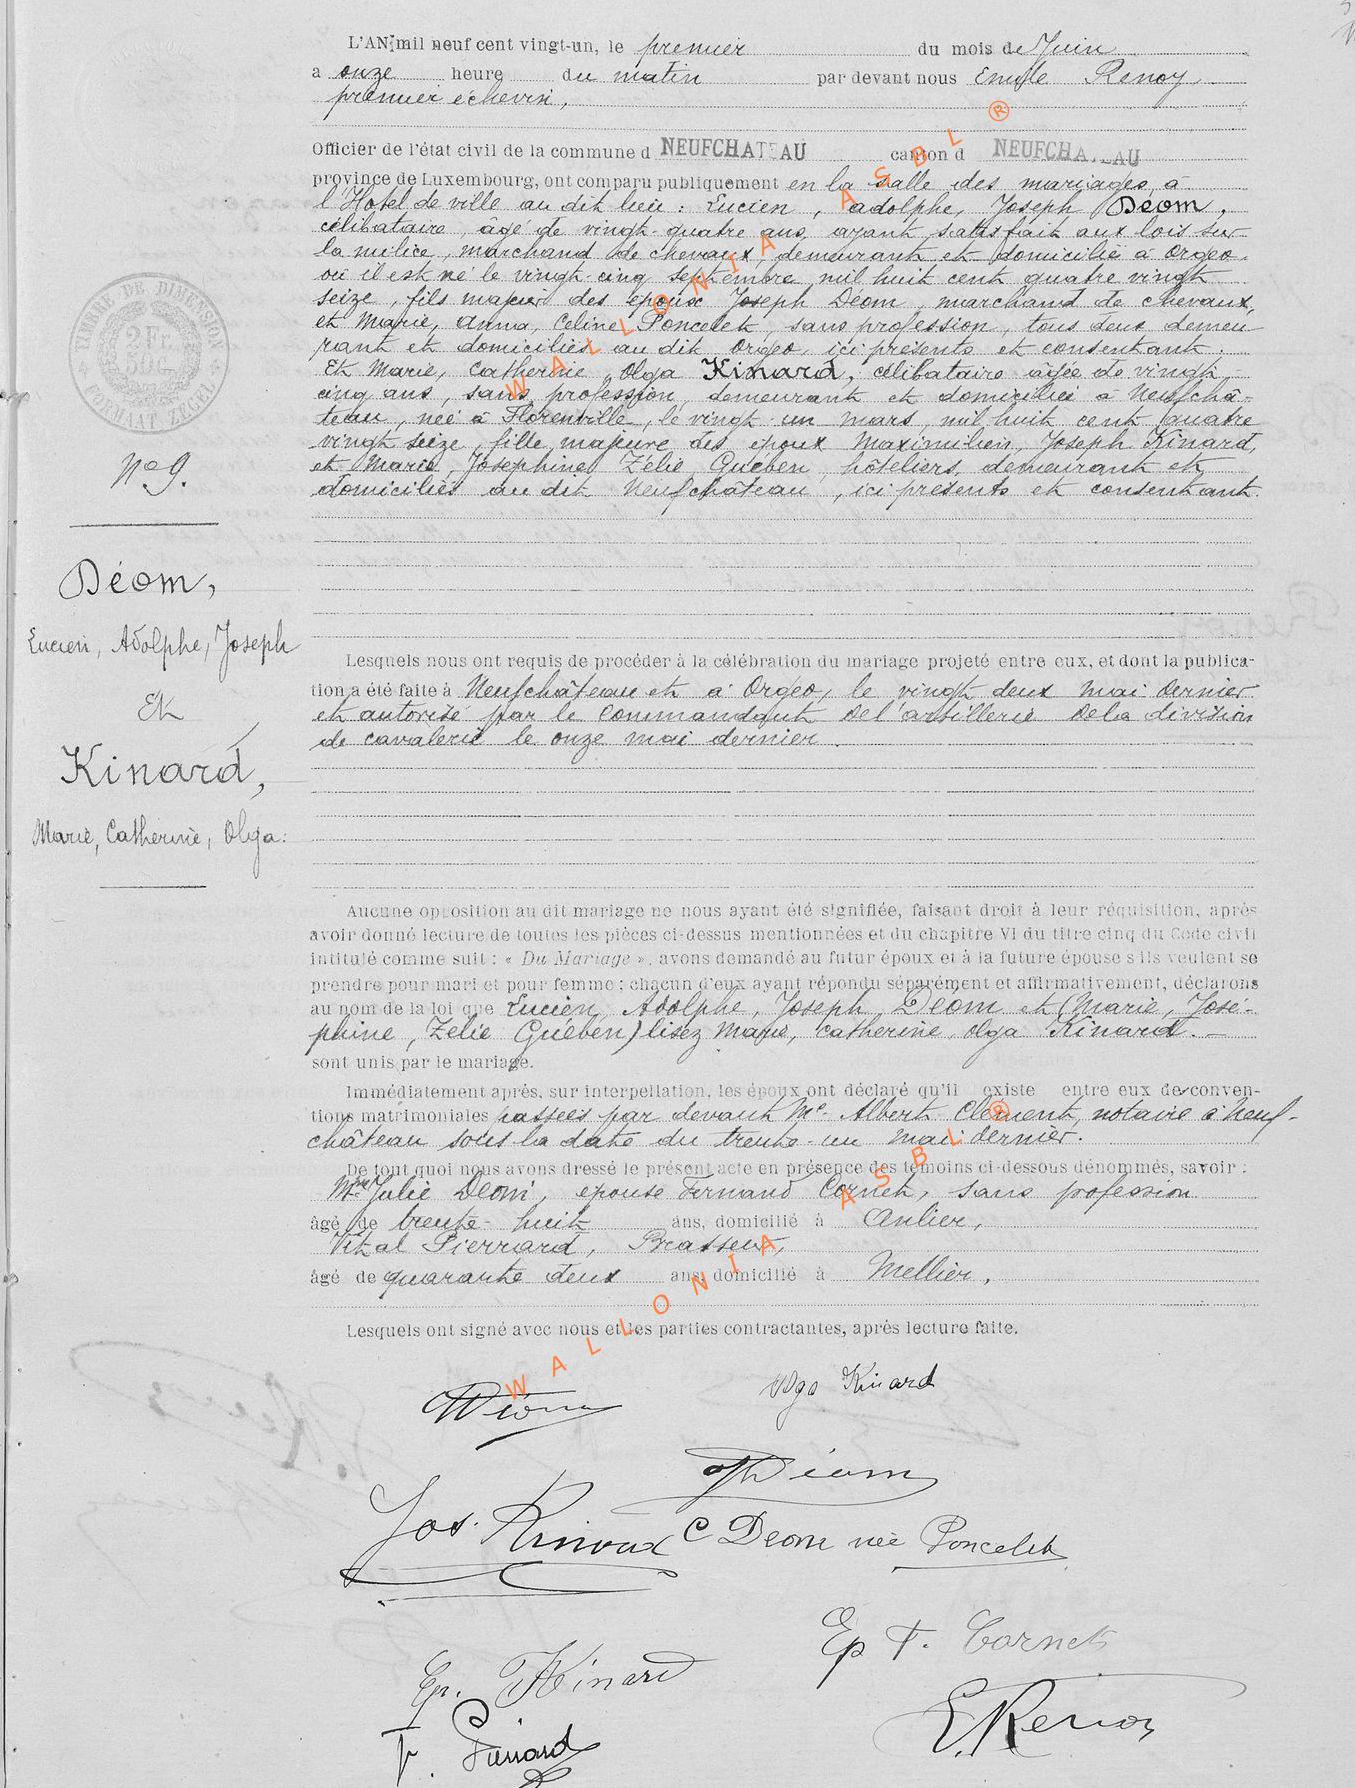 L'AN mil neuf cent vingt-un, le premier du mois de Juin
a onze heure du matin par devant nous Emile Renoy
premier échevin,
Officier de l'état civil de la commune d NEUFCHATEAU canton d NEUFCHATEAU
province de Luxembourg, ont comparu publiquement en la salle des mariages, à
l'Hotel de ville au dit lieu : Lucien, Adolphe, Joseph Déom,
célibataire, âgé de vingt-quatre ans, ayant satisfait aux lois sur
la milice, marchand de chevaux, demeurant et domicilié à Orgeo
où il est né le vingt cinq septembre mil huit cent quatre vingt
seize, fils majeur des époux Joseph Déom, marchand de chevaux,
et Marie, Anna, Celine Poncelet, sans profession, tous deux demeu
rant et domiciliés au dit Orgeo, ici présents et consentant.
Et Marie, Catherine, Olga Kinard, célibataire agée de vingt-
cinq ans, sans profession, demeurant et domiciliée à Neufchâ-
teau, née à Florenville, le vingt-un mars, mil huit cent quatre
vingt seize, fille majeure des époux Maximilien, Joseph Kinard,
et Marie, Joséphine Zélie Guében, hôteliers, demeurant et
domiciliés au dit Neufchâteau, ici présents et consentant.
TIMBRE DE DIMENSION
2 Fr.
FORMAAT ZEGEL
No 9.
Déom,
Lucien, Adolphe, Joseph
Et
Kinard,
Marie, Catherine, Olga :
Lesquels nous ont requis de procéder à la célébration du mariage projeté entre eux, et dont la publica-
tion a été faite à Neufchâteau et à Orgeo, le vingt deux mai dernier
et autorisé par le Commandant de l'artillerie de la division
de cavalerie le onze mai dernier.
Aucune opposition au dit mariage ne nous ayant été signifiée, faisant droit à leur réquisition, après
avoir donné lecture de toutes les pièces ci-dessus mentionnées et du chapitre VI du titre cinq du Code civil
intitulé comme suit : « Du Mariage », avons demandé au futur époux et à la future épouse s'ils veulent se
prendre pour mari et pour femme ; chacun d'eux ayant répondu séparément et affirmativement, déclarons
au nom de la loi que Lucien, Adolphe, Joseph Déom et (Marie, José-
phine, Zélie Guében) lisez Marie, Catherine, Olga Kinard. —
sont unis par le mariage.
Immédiatement après, sur interpellation, les époux ont déclaré qu'il existe entre eux de conven-
tions matrimoniales passées par devant Me Albert Clément, notaire à Neuf-
château sous la date du trente-un mai dernier.
De tout quoi nous avons dressé le présent acte en présence des témoins ci-dessous dénommés, savoir :
Mme Julie Déom, épouse Fernand Cornet, sans profession
âgé de trente-huit ans, domicilié à Anlier,
Vital Pierrard, Brasseur,
âgé de quarante deux ans, domicilié à Mellier,
Lesquels ont signé avec nous et les parties contractantes, après lecture faite.
WALLONIA ASBL ®
WALLONIA ASBL ®
Déom
Olga Kinard
Déom
Jos. Kinard
C Deom née Poncelet
Ep F. Cornet
Ep. Kinard
E. Renoy
V. Pierrard